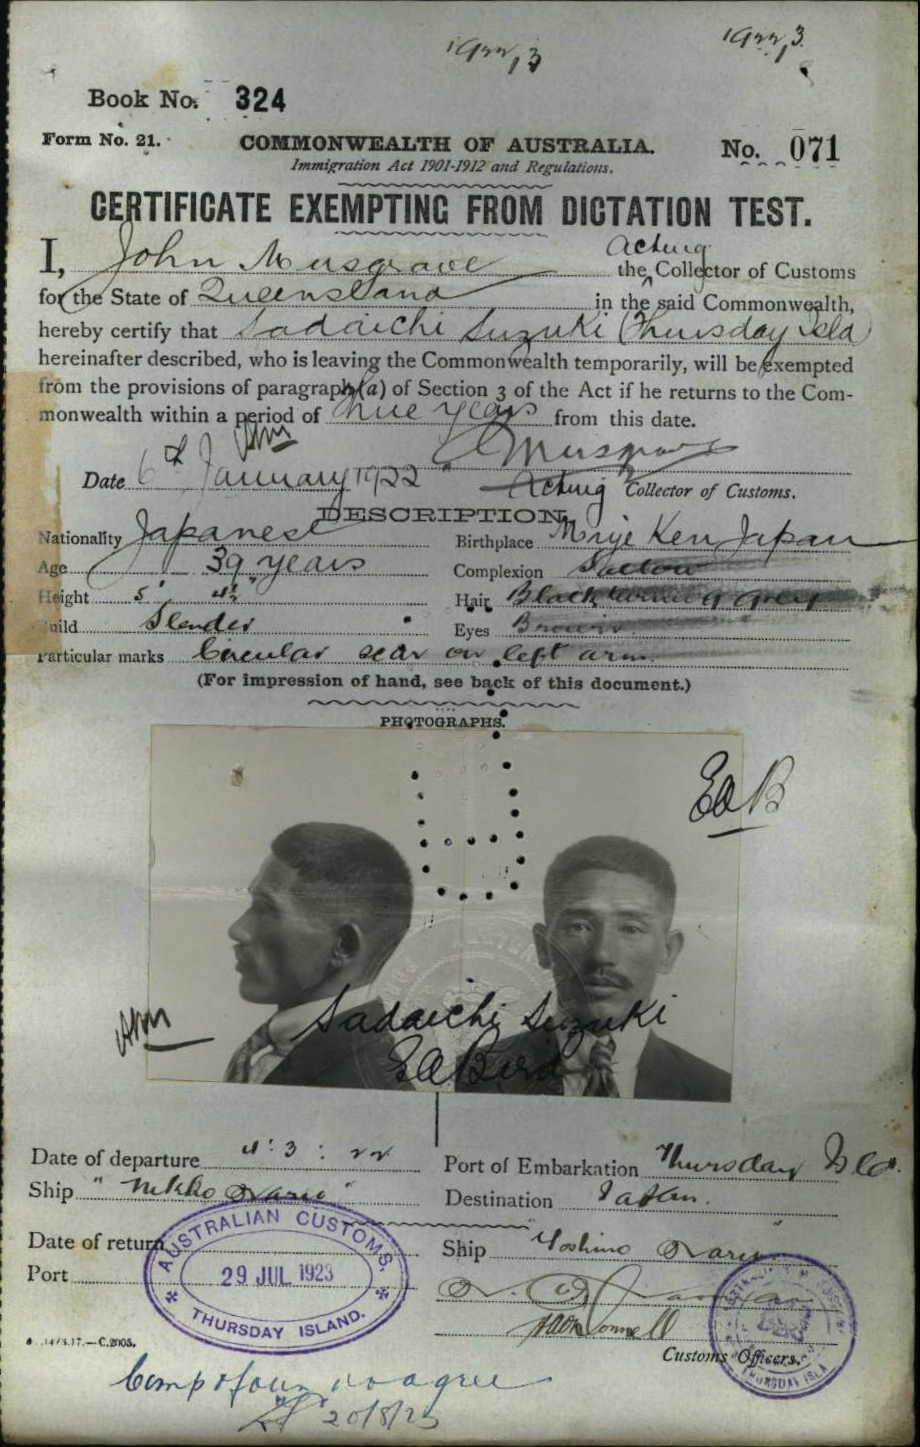 1922/3 1922/3
Book No. 324
Form No. 21. COMMONWEALTH OF AUSTRALIA. No. 071
Immigration Act 1901-1912 and Regulations.
CERTIFICATE EXEMPTING FROM DICTATION TEST.
Acting
I, John Musgrave the Collector of Customs
for the State of Queensland in the said Commonwealth,
hereby certify that Sadaichi Suzuki (Thursday Isld)
hereinafter described, who is leaving the Commonwealth temporarily, will be exempted
from the provisions of paragraph (a) of Section 3 of the Act if he returns to the Com-
monwealth within a period of three years from this date.
JM
J Musgrave
Date 6th January 1922 Acting Collector of Customs.
DESCRIPTION.
Nationality Japanese Birthplace Miye Ken Japan
Age 39 years Complexion Sallow
Height 5' 4½" Hair Black turning grey
Build Slender Eyes Brown
Particular marks Circular scar on left arm
(For impression of hand, see back of this document.)
PHOTOGRAPHS.
EAB
JM
Sadaichi Suzuki
EA Bird
Date of departure 4: 3: 22 Port of Embarkation Thursday Isld.
Ship "Nikko Maru" Destination Japan.
Date of return Ship "Yoshino Maru"
Port
AUSTRALIAN CUSTOMS.
29 JUL 1923
THURSDAY ISLAND.
Customs Officers.
THURSDAY ISLA
C.2005.
20/8/23